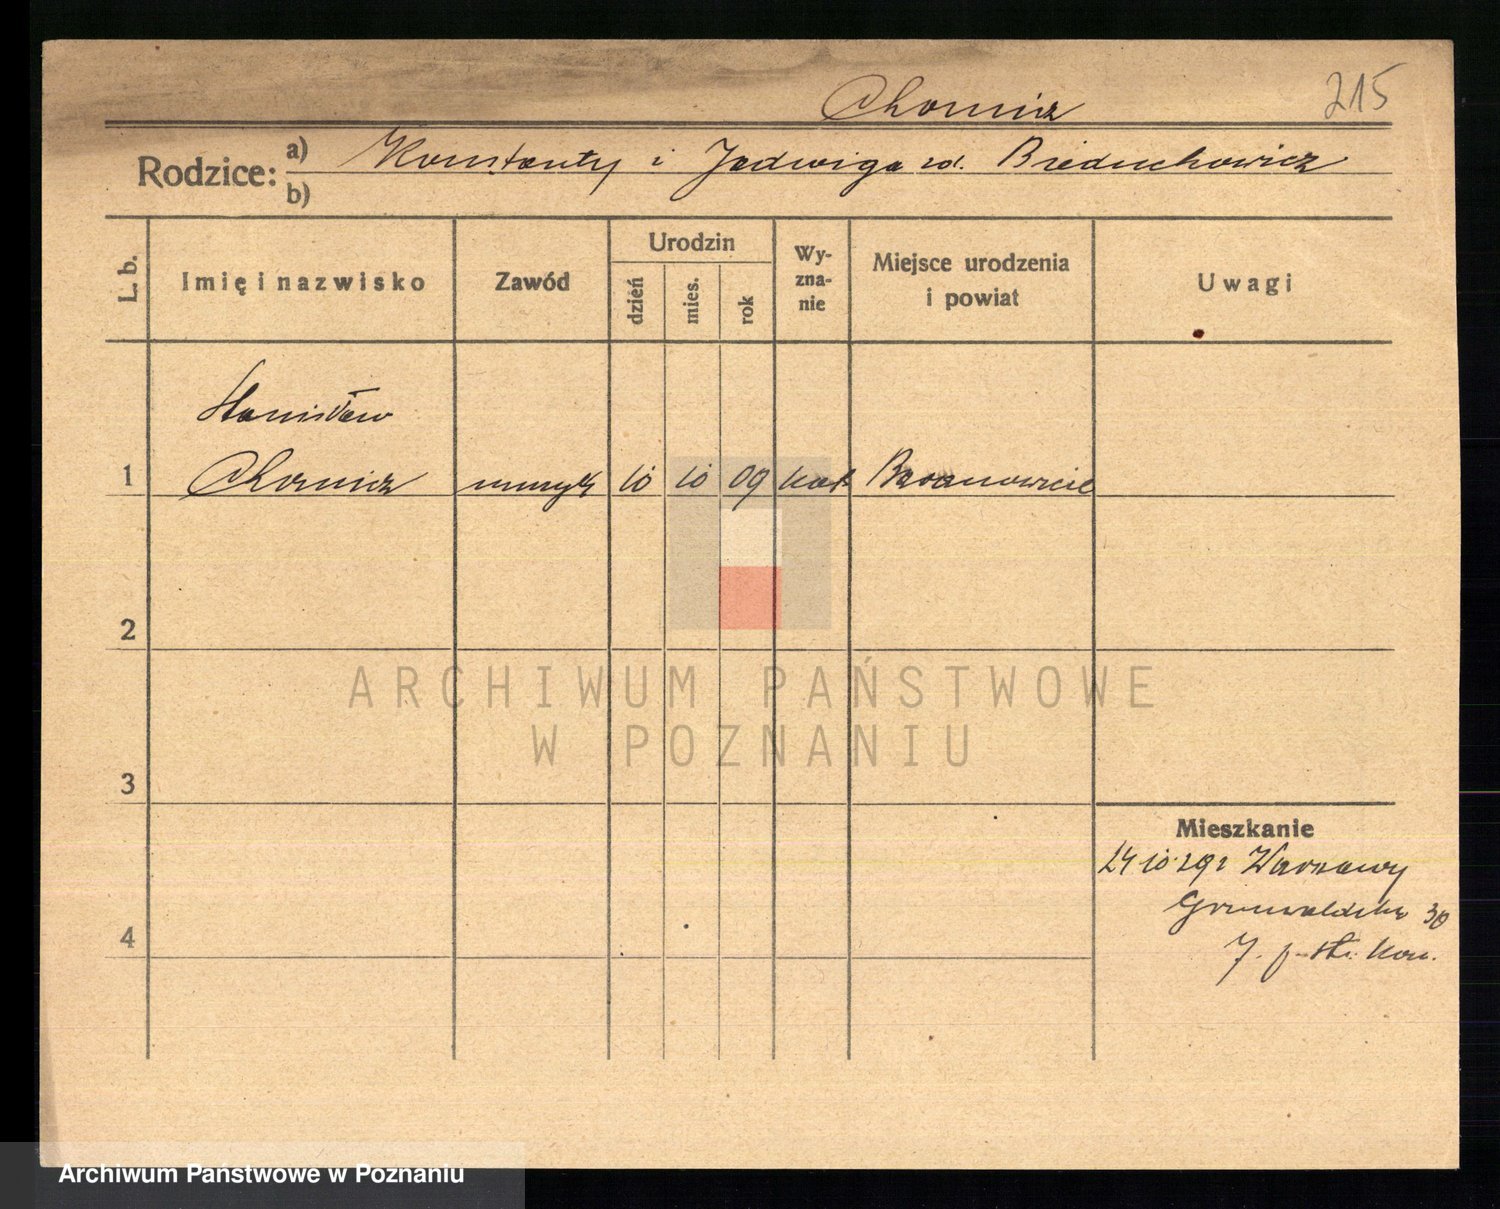 Chomicz
215
Rodzice: a) Konstanty i Jadwiga zd. Bieduchowicz
b)
L. b.
Imię i nazwisko
Zawód
Urodzin
dzień
mies.
rok
Wy-
zna-
nie
Miejsce urodzenia
i powiat
Uwagi
Stanisław
1 Chomicz muzyk 10 10 09 kat Baranowicze
2
3
4
Mieszkanie
24 10 29 z Warszawy
Grunwaldzka 30
ARCHIWUM PAŃSTWOWE
W POZNANIU
Archiwum Państwowe w Poznaniu